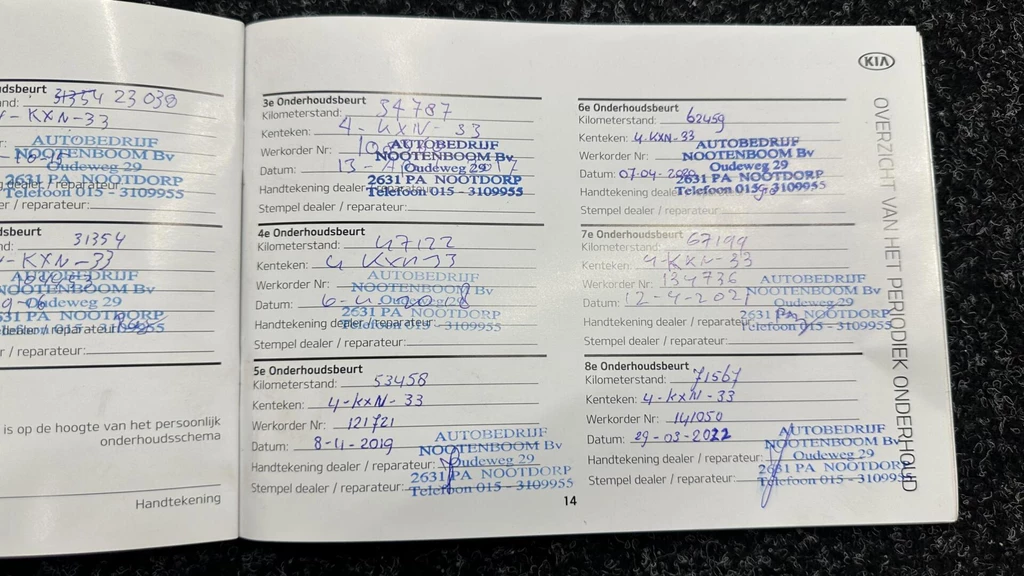 udsbeurt
nd: 31354 23 038
-KXN-33
AUTOBEDRIJF
NOOTENBOOM Bv
Oudeweg 29
2631 PA NOOTDORP
dealer / reparateur:
Telefoon 015 - 3109955
r / reparateur:
dsbeurt
d: 31354
-KXN-33
AUTOBEDRIJF
NOOTENBOOM Bv
Oudeweg 29
631 PA NOOTDORP
r / reparateur:
is op de hoogte van het persoonlijk
onderhoudsschema
Handtekening
3e Onderhoudsbeurt
Kilometerstand: 34787
Kenteken: 4-KXN-33
Werkorder Nr:
AUTOBEDRIJF
NOOTENBOOM Bv
Datum: 13-
Oudeweg 29
2631 PA NOOTDORP
Handtekening dealer / reparateur:
Telefoon 015 - 3109955
Stempel dealer / reparateur:
4e Onderhoudsbeurt
Kilometerstand: 47122
Kenteken: 4 KXN-33
Werkorder Nr:
AUTOBEDRIJF
NOOTENBOOM Bv
Datum: 6-4
Oudeweg 29
2631 PA NOOTDORP
Handtekening dealer / reparateur:
Telefoon 015 - 3109955
Stempel dealer / reparateur:
5e Onderhoudsbeurt
Kilometerstand: 53458
Kenteken: 4-KXN-33
Werkorder Nr: 121721
Datum: 8-4-2019
AUTOBEDRIJF
NOOTENBOOM Bv
Handtekening dealer / reparateur:
Oudeweg 29
2631 PA NOOTDORP
Stempel dealer / reparateur:
Telefoon 015 - 3109955
14
KIA
6e Onderhoudsbeurt
Kilometerstand: 62459
Kenteken: 4 KXN-33
Werkorder Nr:
AUTOBEDRIJF
NOOTENBOOM Bv
Datum: 07-04-2020
Oudeweg 29
2631 PA NOOTDORP
Handtekening dealer
Telefoon 015 - 3109955
Stempel dealer / reparateur:
7e Onderhoudsbeurt
Kilometerstand: 67199
Kenteken: 4-KXN-33
Werkorder Nr: 134736
AUTOBEDRIJF
NOOTENBOOM Bv
Datum: 12-4-2021
Oudeweg 29
2631 PA NOOTDORP
Handtekening dealer / reparateur:
Telefoon 015 - 3109955
Stempel dealer / reparateur:
8e Onderhoudsbeurt
Kilometerstand: 71567
Kenteken: 4-KXN-33
Werkorder Nr: 141050
Datum: 29-03-2022
AUTOBEDRIJF
NOOTENBOOM Bv
Handtekening dealer / reparateur:
Oudeweg 29
2631 PA NOOTDORP
Stempel dealer / reparateur:
Telefoon 015 - 3109955
OVERZICHT VAN HET PERIODIEK ONDERHOUD